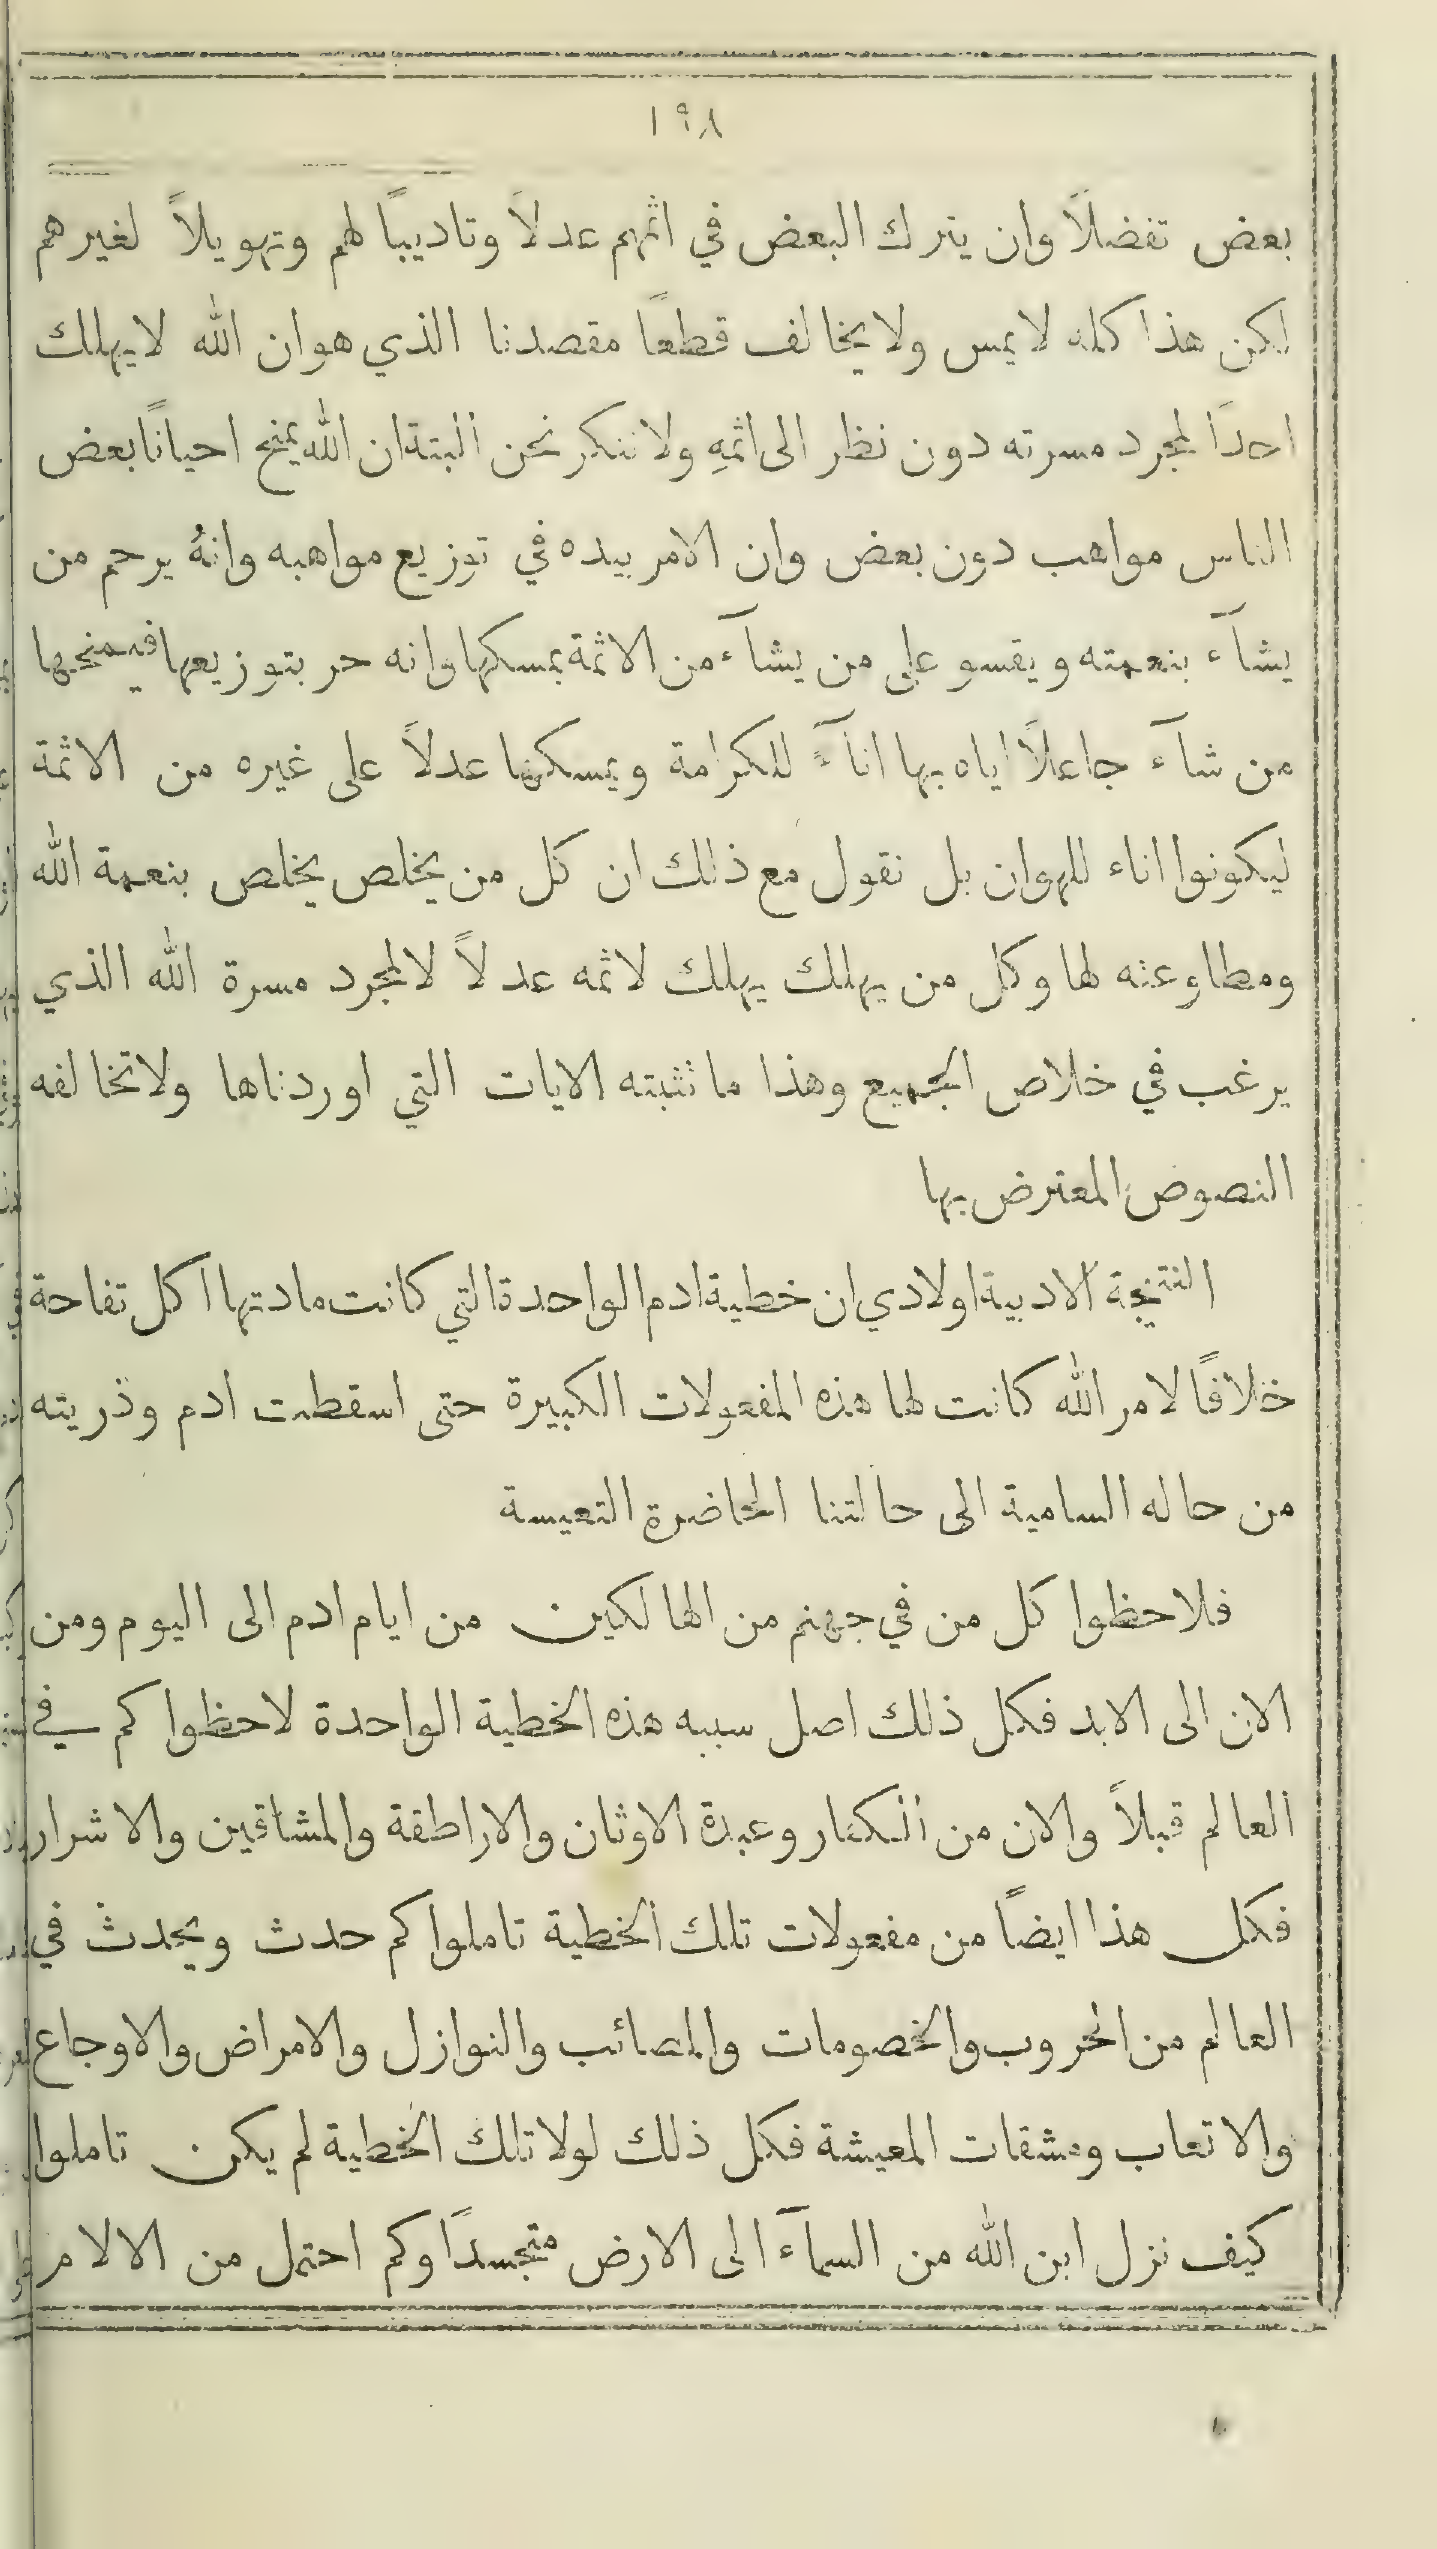 ١٩٨
بعض تفضلاً وان يترك البعض في اثمهم عدلاً وتاديباً لهم وتهويلاً لغيرهم
لكن هذا كله لا يمس ولا يخالف قطعاً مقصدنا الذي هو ان الله لا يهلك
احداً لمجرد مسرته دون نظر الى اثمهِ ولا ننكر نحن البتة ان الله يمنح احياناً بعض
الناس مواهب دون بعض وان الامر بيده في توزيع مواهبه وانهُ يرحم من
يشآء بنعمته ويقسو على من يشآء من الاثمة بمسكها وانه حر بتوزيعها فيمنحها
من شآء جاعلاً اياه بها انآءً للكرامة ويمسكها عدلاً على غيره من الاثمة
ليكونوا اناء للهوان بل نقول مع ذلك ان كل من يخلص يخلص بنعمة الله
ومطاوعته لها وكل من يهلك يهلك لاثمه عدلاً لا لمجرد مسرة الله الذي
يرغب في خلاص الجميع وهذا ما تثبته الايات التي اوردناها ولا تخالفه
النصوص المعترض بها
النتيجة الادبية اولادي ان خطية ادم الواحدة التي كانت مادتها اكل تفاحة
خلافاً لامر الله كانت لها هذه المفعولات الكبيرة حتى اسقطت ادم وذريته
من حاله السامية الى حالتنا الحاضرة التعيسة
فلاحظوا كل من في جهنم من الهالكين من ايام ادم الى اليوم ومن
الان الى الابد فكل ذلك اصل سببه هذه الخطية الواحدة لاحظوا كم في
العالم قبلاً والان من الكفار وعبدة الاوثان والاراطقة والمشاقين والاشرار
فكل هذا ايضاً من مفعولات تلك الخطية تاملوا كم حدث ويحدث في
العالم من الحروب والخصومات والمصائب والنوازل والامراض والاوجاع
والاتعاب ومشقات المعيشة فكل ذلك لولا تلك الخطية لم يكن تاملوا
كيف نزل ابن الله من السمآء الى الارض متجسداً وكم احتمل من الالام